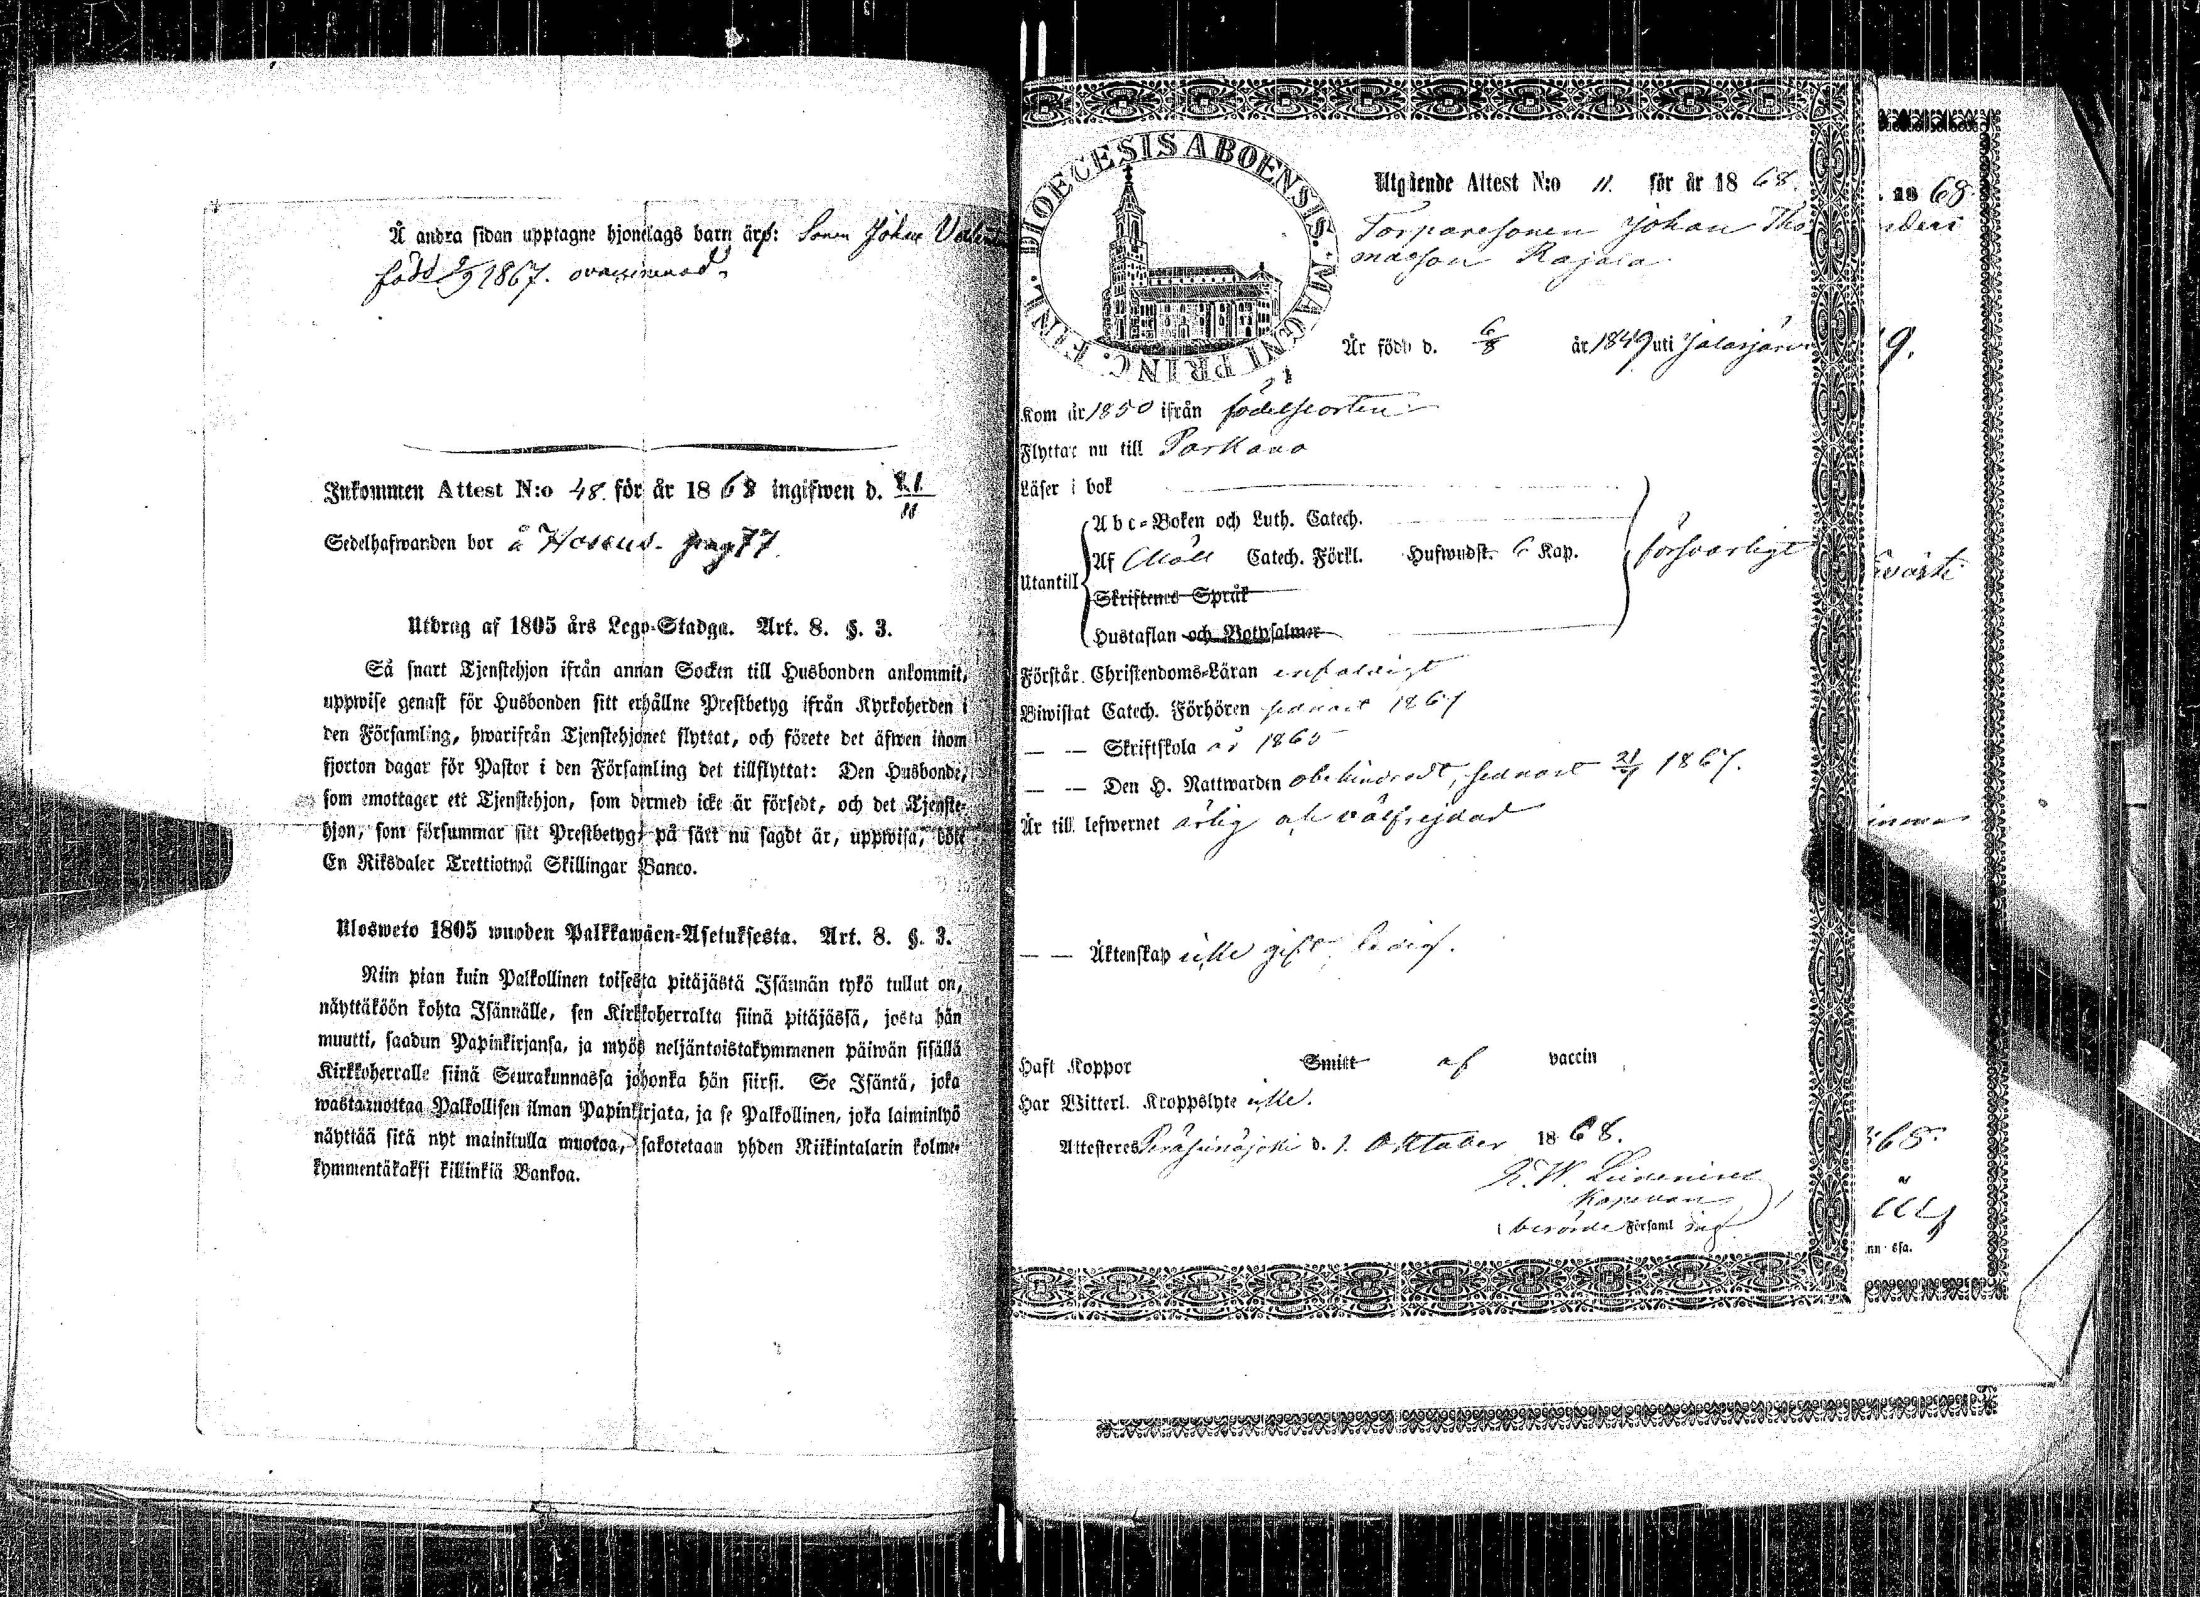 Å andra sidan upptagne hjonelags barn äro: Sonen Johan
född 9/9 1867. ovaccinerad.
Inkommen Attest N:o 48. för år 1868 ingifwen d.
Sedelhafwanden bor å pag 77.
Utdrag af 1805 års Lego-Stadga. Art. 8. §. 3.
Så snart Tjenstehjon ifrån annan Socken till Husbonden ankommit,
uppwise genast för Husbonden sitt erhållne Prestbetyg ifrån Kyrkoherden i
den Församling, hwarifrån Tjenstehjonet flyttat, och förete det äfwen inom
fjorton dagar för Pastor i den Församling det tillflyttat: Den Husbonde,
som emottager ett Tjenstehjon, som dermed icke är försedt, och det Tjenste-
hjon, som försummar sitt Prestbetyg, på sätt nu sagdt är, uppwisa, böte
En Riksdaler Trettiotwå Skillingar Banco.
Ulosweto 1805 wuoden Palkkawäen-Asetuksesta. Art. 8. §. 3.
Niin pian kuin Palkollinen toisesta pitäjästä Isännän tykö tullut on,
näyttäköön kohta Isännälle, sen Kirkkoherralta siinä pitäjässä, josta hän
muutti, saadun Papinkirjansa, ja myös neljäntoistakymmenen päiwän sisällä
Kirkkoherralle siinä Seurakunnassa johonka hän siirsi. Se Isäntä, joka
wastaanottaa Palkollisen ilman Papinkirjata, ja se Palkollinen, joka laiminlyö
näyttää sitä nyt mainitulla muotoa, sakotetaan yhden Riikintalarin kolme-
kymmentäkaksi killinkiä Bankoa.
DIOECESIS ABOENSIS. MAGNI PRINC. FINL.
Utgående Attest N:o 11. för år 1868.
Torparesonen Johan Tho
masson Rajala
Är född d. 6/8 år 1849 uti Jalasjärvi
Kom år 1850 ifrån födelseorten
Flyttar nu till Parkano
Läser i bok
Abc-Boken och Luth. Catech.
Utantill Af Möll Catech. Förkl. Hufwudst. 6 Kap. försvarligt
Skriftenes Språk
Hustaflan och Botpsalmer
Förstår Christendoms-Läran enfaldigt
Biwistat Catech. Förhören sednast 1867
— — Skriftskola år 1865
— — Den H. Nattwarden obehindradt, sednast 21/7 1867.
Är till lefwernet ärlig och välfrejdad
— — Äktenskap icke gift, ledig.
Haft Koppor Smitt af vaccin
Har Witterl. Kroppslyte icke.
Attesteres Peräseinäjoki d. 1. Oktober 1868.
Kapellan
i berörde Församling
. 18 68
9.
nn ssa.